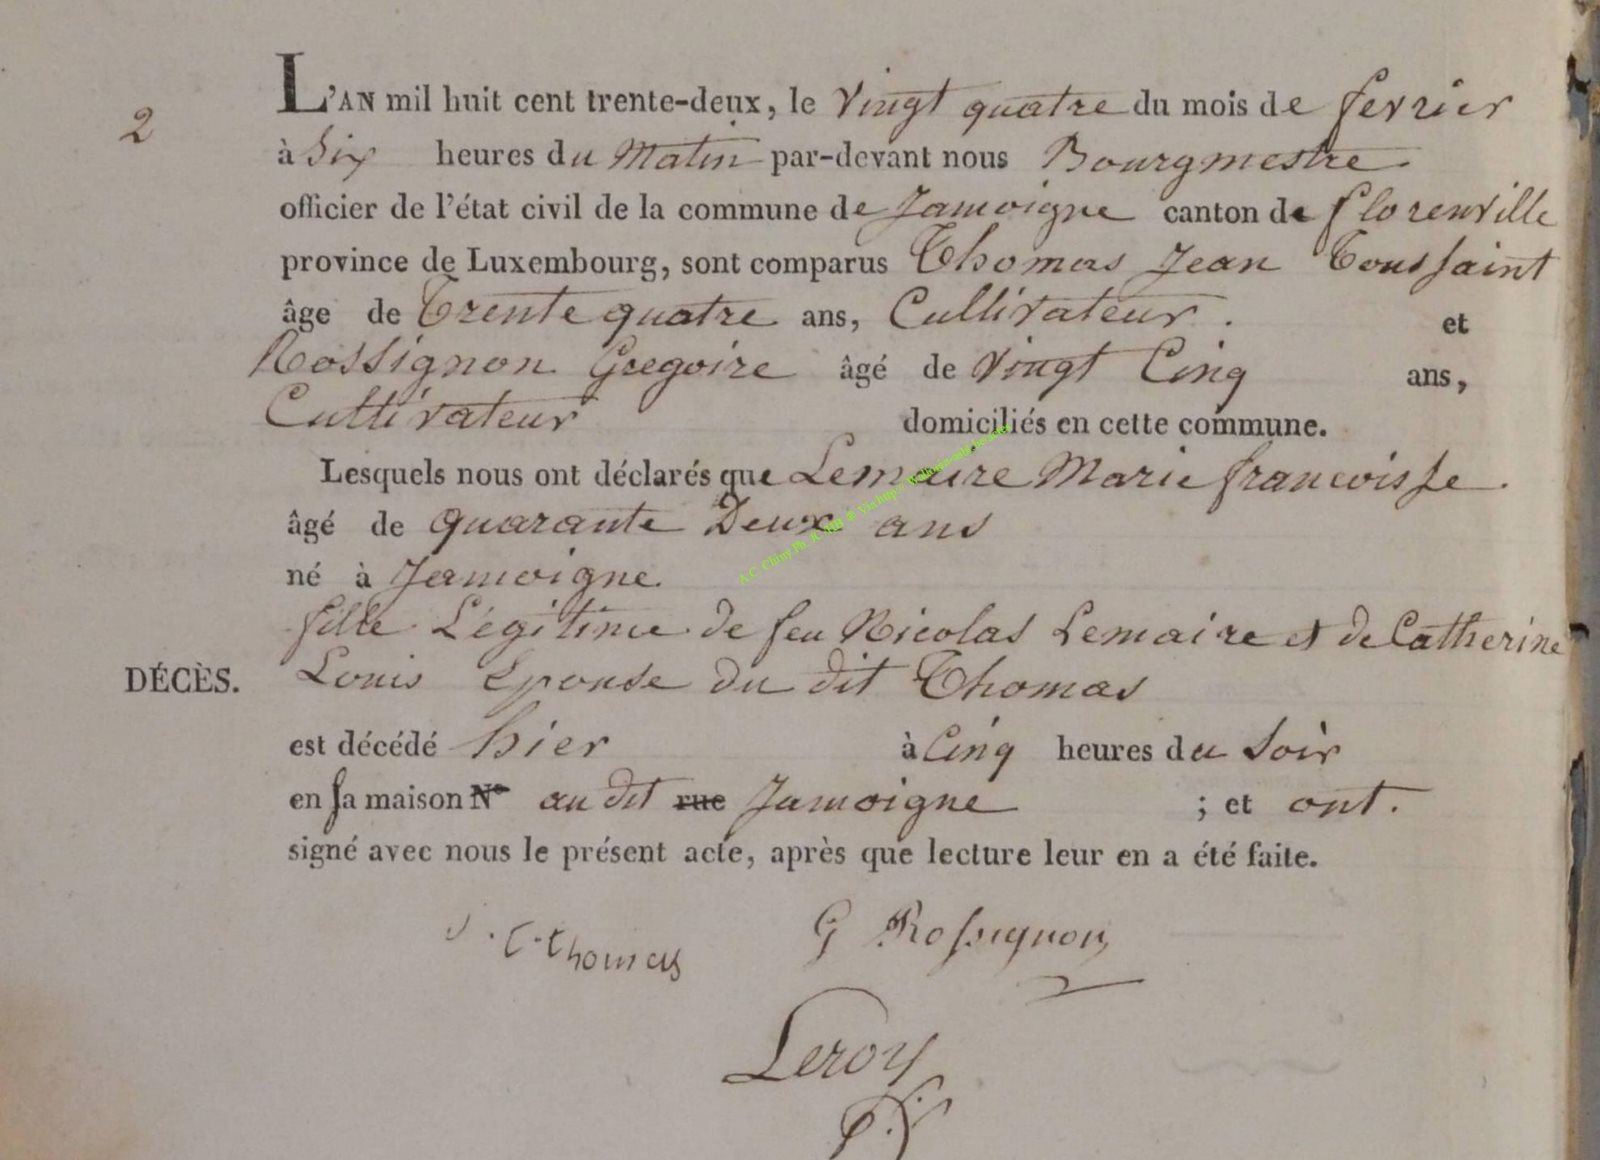 2
L'AN mil huit cent trente-deux, le vingt quatre du mois de fevrier
à Six heures du Matin par-devant nous Bourgmestre
officier de l'état civil de la commune de Jamoigne canton de florenville
province de Luxembourg, sont comparus Thomas Jean Toussaint
âge de Trente quatre ans, Cultivateur. et
Rossignon Gregoire âgé de vingt Cinq ans,
Cultivateur domiciliés en cette commune.
Lesquels nous ont déclarés que Lemaire Marie francoisse.
âgé de quarante Deux ans
né à Jamoigne.
fille Légitime de feu Nicolas Lemaire et de Catherine
DÉCÈS. Louis Epouse du dit Thomas
est décédé hier à Cinq heures du Soir
en sa maison N° au dit rue Jamoigne ; et ont.
signé avec nous le présent acte, après que lecture leur en a été faite.
J. T. thomas G Rossignon
Leroy